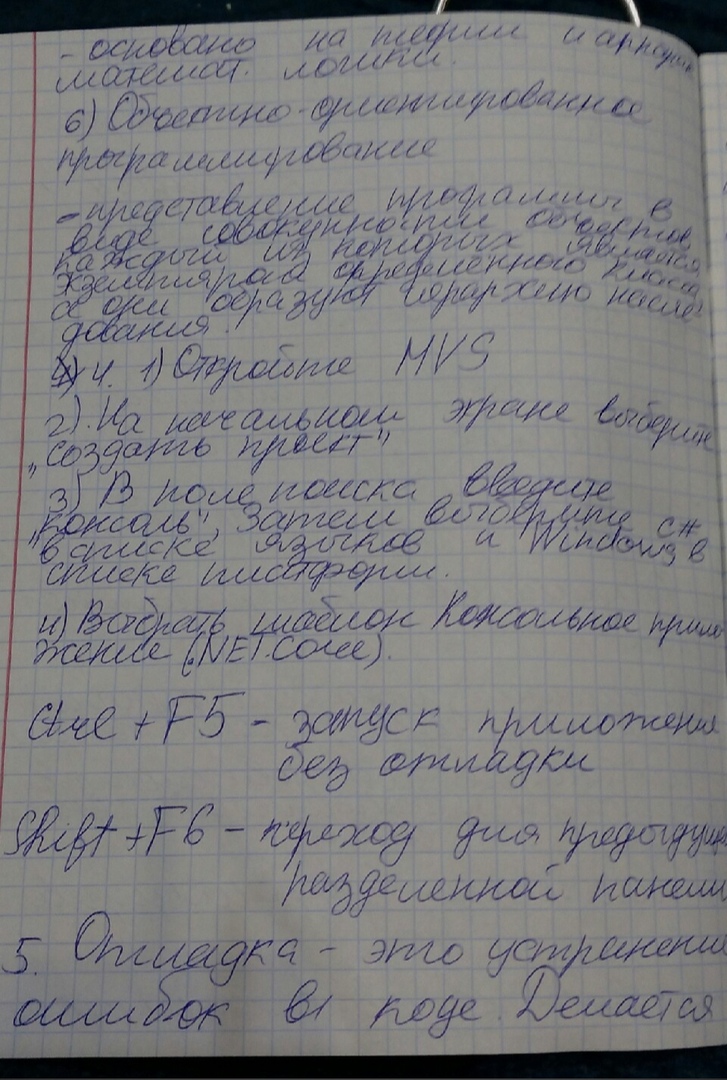 - основано на теории и аппарате
математ. логики.
6) Объектно-ориентированное
программирование
- представление программы в
виде совокупности объектов,
каждый из которых является
экземпляром определенного класса
а они образуют иерархию насле-
дования.
4. 1) Откройте MVS
2). На начальном экране выберите
„создать проект"
3) В поле поиска введите
„консоль", Затем выберите C#
в списке языков и Windows в
списке платформ.
4) Выбрать шаблон Консольное прило
жение (.NET.Core).
Ctrl + F5 - запуск приложения
без отладки
Shift + F6 - переход для предыдущ
разделенной панели
5. Отладка - это устранение
ошибок в коде. Делается